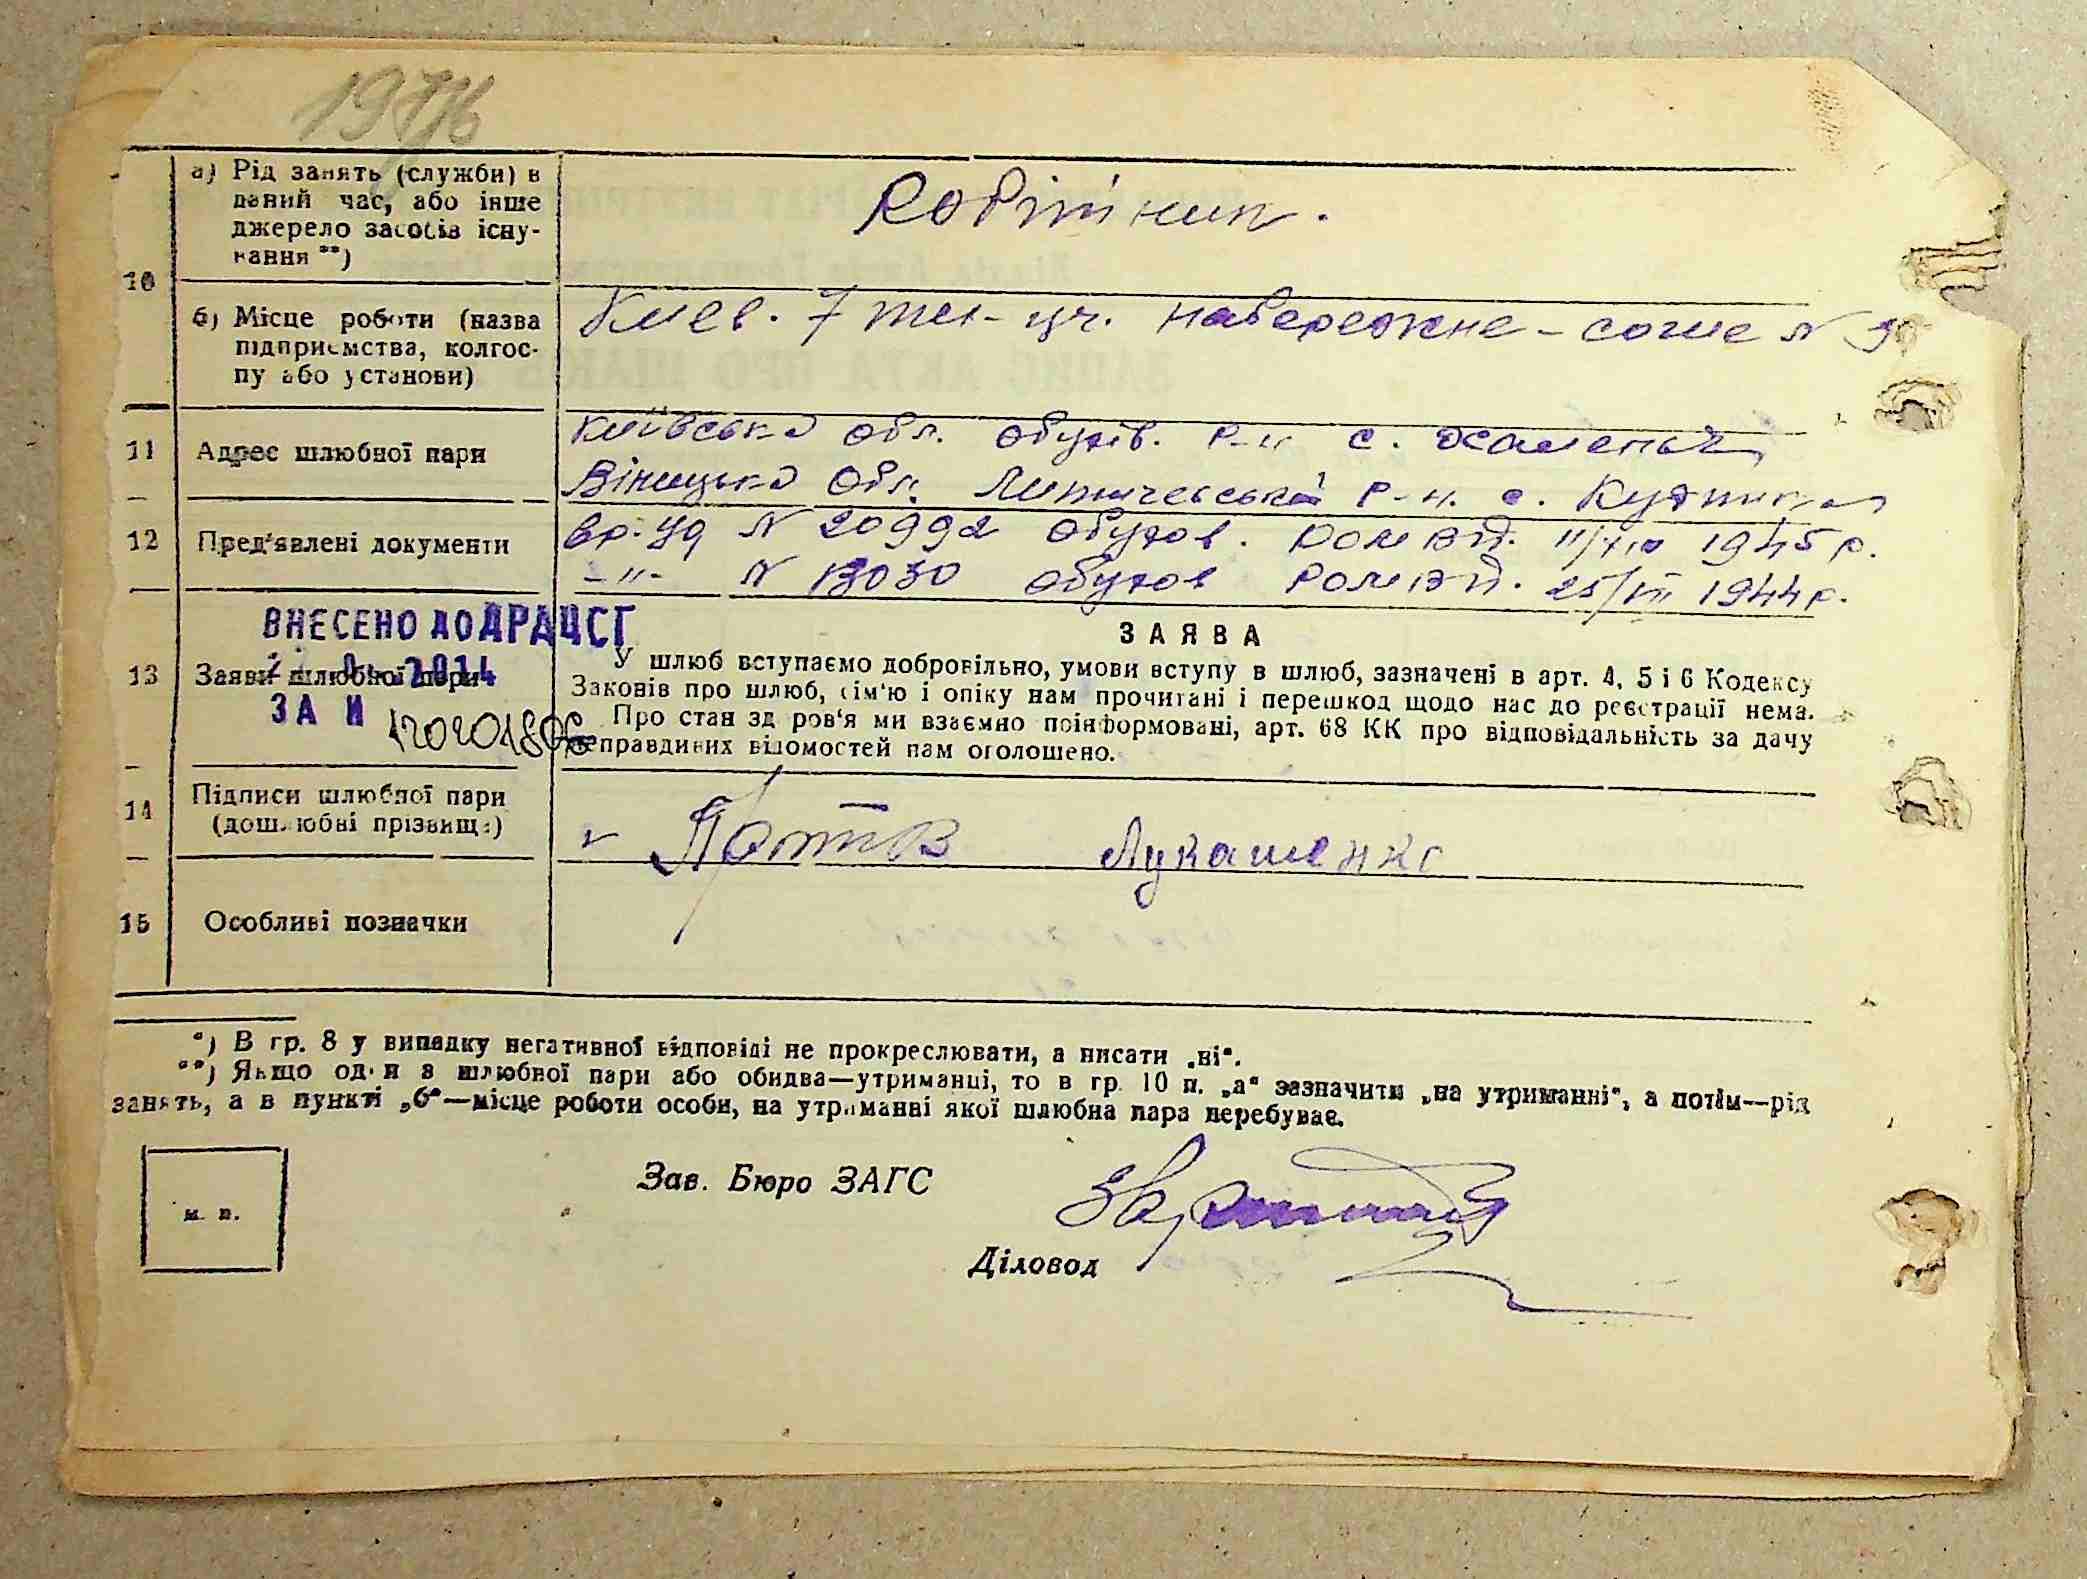 19
10
а) Рід занять (служби) в
даний час, або інше
джерело засобів існу-
вання **)
Робітник.
б) Місце роботи (назва
підприємства, колгос-
пу або установи)
Киев. 7 набережне - N
11 Адрес шлюбної пари
Київська обл. обухів. р-н с.
Вінницька обл. р-н. с.
12 Пред'явлені документи
вр. уд N 20992 обухов. 1945 р.
-"- N 13030 обухов 25/VII 1944 р.
ВНЕСЕНО ДО ДРАЦСГ
2014
ЗА N
13 Заяви шлюбної пари
ЗАЯВА
У шлюб вступаємо добровільно, умови вступу в шлюб, зазначені в арт. 4, 5 і 6 Кодексу
Законів про шлюб, сім'ю і опіку нам прочитані і перешкод щодо нас до реєстрації нема.
Про стан здоров'я ми взаємно поінформовані, арт. 68 КК про відповідальність за дачу
неправдивих відомостей нам оголошено.
14 Підписи шлюбної пари
(дошлюбні прізвища)
Лукашенко
15 Особливі позначки
*) В гр. 8 у випадку негативної відповіді не прокреслювати, а писати „ні“.
**) Якщо один з шлюбної пари або обидва—утриманці, то в гр. 10 п. „а“ зазначити „на утриманні“, а потім—рід
занять, а в пункті „б“—місце роботи особи, на утриманні якої шлюбна пара перебуває.
м. п.
Зав. Бюро ЗАГС
Діловод